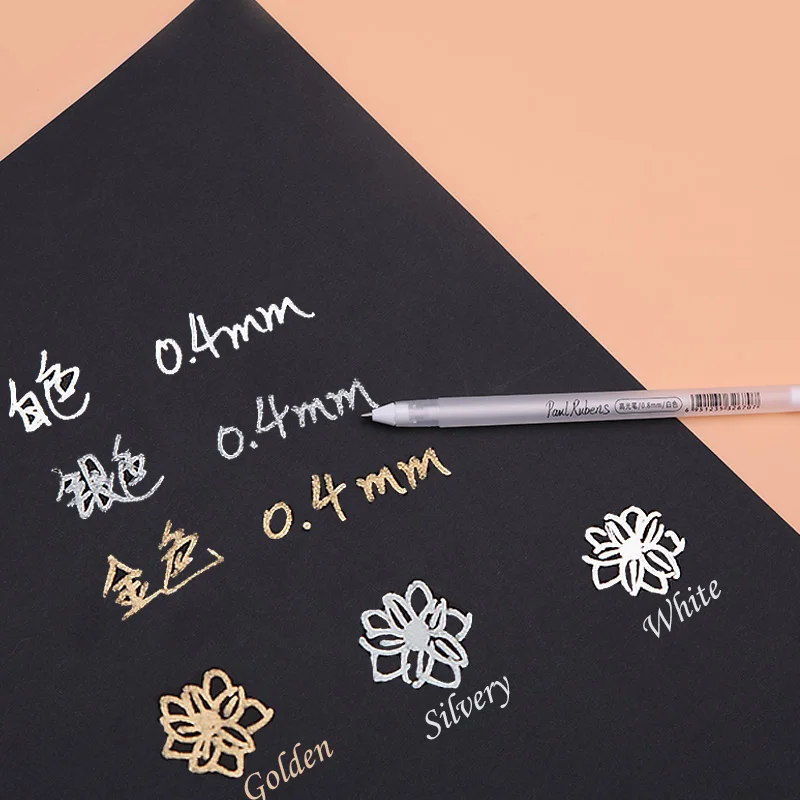 白色 0.4mm
银色 0.4mm
金色 0.4mm
Paul Rubens
高光笔/0.8mm/白色
White
Silvery
Golden